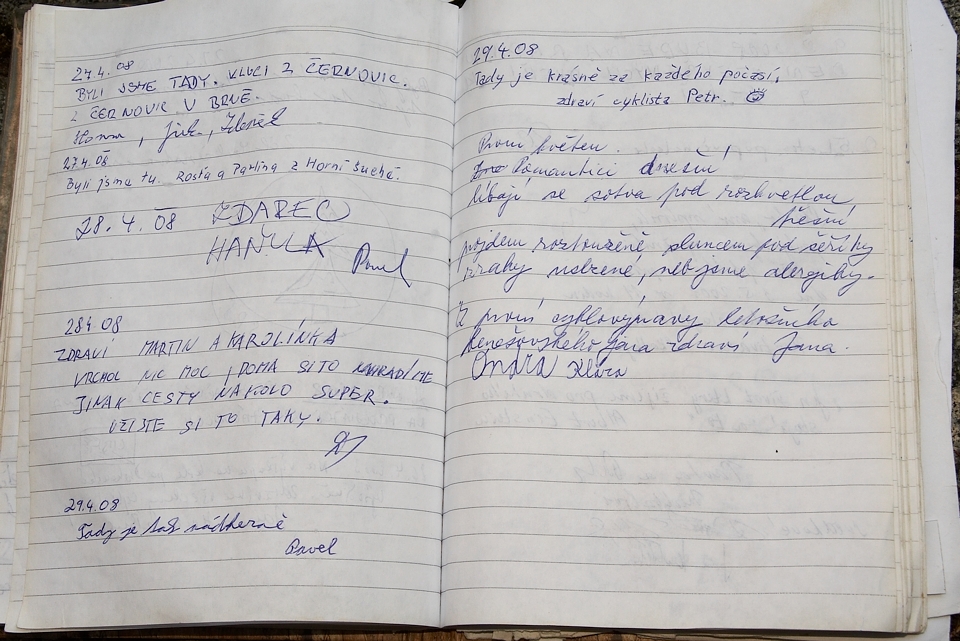 27.4.08
BYLI JSME TADY. KLUCI Z ČERNOVIC.
Z ČERNOVIC V BRNĚ.
Zdeněk
27.4.08
Byli jsme tu. Rosťa a Pavlína z Horní Suché.
28.4.08 ZDAREC
HAŇULA
Pavel
28.4.08
ZDRAVÍ MARTIN A KAROLÍNKA
VRCHOL NIC MOC, DOMA SI TO NAHRADÍME
JINAK CESTY NAKOLO SUPER.
UŽIJTE SI TO TAKY.
29.4.08
Tady je tak nádherně
Pavel
29.4.08
Tady je krásně za každého počasí,
zdraví cyklista Petr.
První květen.
Romantici dnešní
líbají se sotva pod rozkvetlou
třešní
pojďem rozloučeně, sluncem pod šeříky
nebo jsme alergiky.
Z první cyklovýpravy letošního
benešovského jara zdraví Jana.
Ondra Klára